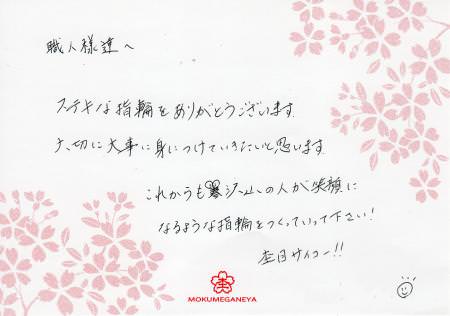 職人様達へ
ステキな指輪をありがとうございます
大切に大事に身につけていきたいと思います
これからも沢山の人が笑顔に
なるような指輪をつくっていって下さい!
杢目サイコー!!
杢
MOKUMEGANEYA